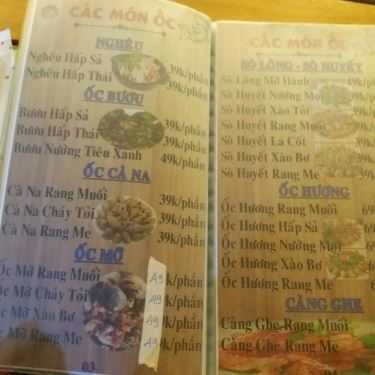 CÁC MÓN ỐC
NGHÊU
Nghêu Hấp Sả 39k/phần
Nghêu Hấp Thái 39k/phần
ỐC BƯƠU
Bươu Hấp Sả 39k/phần
Bươu Hấp Thái 39k/phần
Bươu Nướng Tiêu Xanh 49k/phần
ỐC CÀ NA
Cà Na Rang Muối 39k/phần
Cà Na Cháy Tỏi 39k/phần
Cà Na Rang Me 39k/phần
ỐC MỠ
Ốc Mỡ Rang Muối 49k/phần
Ốc Mỡ Cháy Tỏi 49k/phần
Ốc Mỡ Xào Bơ 49k/phần
Ốc Mỡ Rang Me 49k/phần
03
CÁC MÓN ỐC
SÒ LÔNG - SÒ HUYẾT
Sò Lông Mỡ Hành
Sò Huyết Nướng Mọi
Sò Huyết Xào Tỏi
Sò Huyết Rang Muối
Sò Huyết La Cót
Sò Huyết Xào Bơ
Sò Huyết Rang Me
ỐC HƯƠNG
Ốc Hương Rang Muối
Ốc Hương Hấp Sả
Ốc Hương Nướng Mọi
Ốc Hương Xào Bơ
Ốc Hương Rang Me
CÀNG GHẸ
Càng Ghẹ Rang Muối
Càng Ghẹ Rang Me